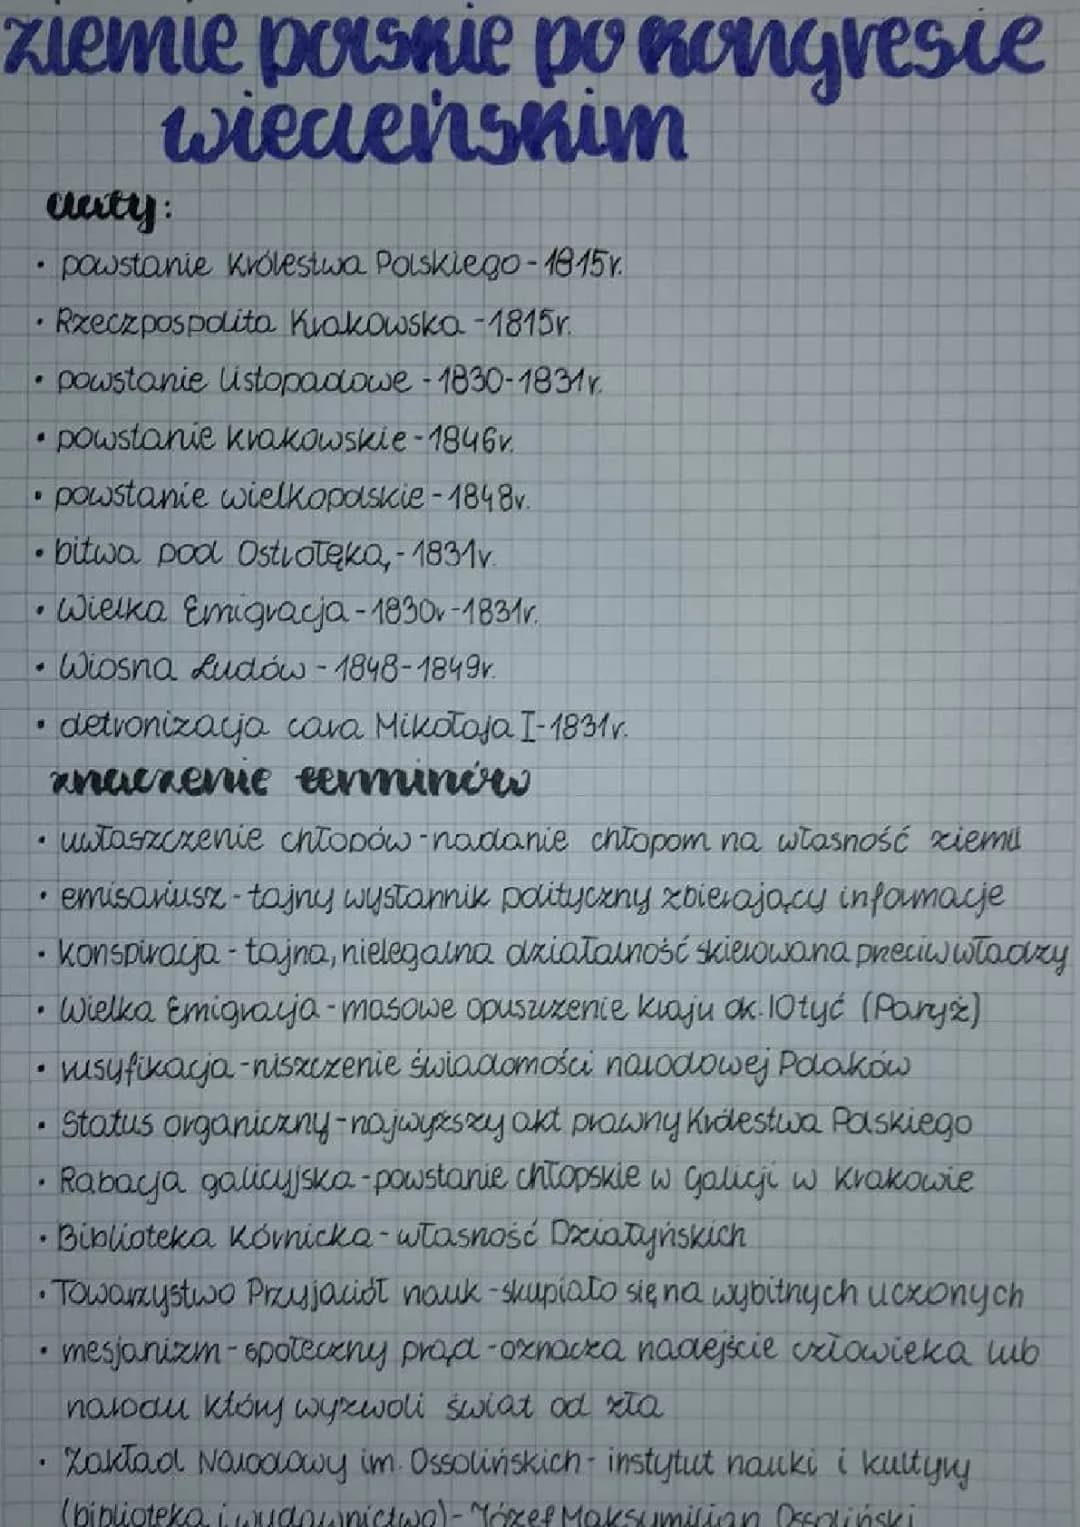 ziemie polskie po kongresie
wiedeńskim
daty:
• powstanie Królestwa Polskiego - 1815r.
• Rzeczpospolita Krakowska - 1815r.
• powstanie listopadowe - 1830-1831r.
• powstanie krakowskie - 1846r.
• powstanie wielkopolskie - 1848r.
• bitwa pod Ostrołęką - 1831r.
• Wielka Emigracja - 1830r - 1831r.
• Wiosna Ludów - 1848-1849r.
• detronizacja cara Mikołaja I - 1831r.
znaczenie terminów
• uwłaszczenie chłopów - nadanie chłopom na własność ziemi
• emisariusz - tajny wysłannik polityczny zbierający informacje
• konspiracja - tajna, nielegalna działalność skierowana przeciw władzy
• Wielka Emigracja - masowe opuszczenie kraju ok. 10tyć (Paryż)
• rusyfikacja - niszczenie świadomości narodowej Polaków
• Status organiczny - najwyższy akt prawny Królestwa Polskiego
• Rabacja galicyjska - powstanie chłopskie w Galicji w Krakowie
• Biblioteka Kórnicka - własność Działyńskich
• Towarzystwo Przyjaciół nauk - skupiało się na wybitnych uczonych
• mesjanizm - społeczny prąd - oznacza nadejście człowieka lub
narodu który wyzwoli świat od zła
• Zakład Narodowy im. Ossolińskich - instytut nauki i kultury
(biblioteka i wydawnictwo) - Józef Maksymilian Ossoliński